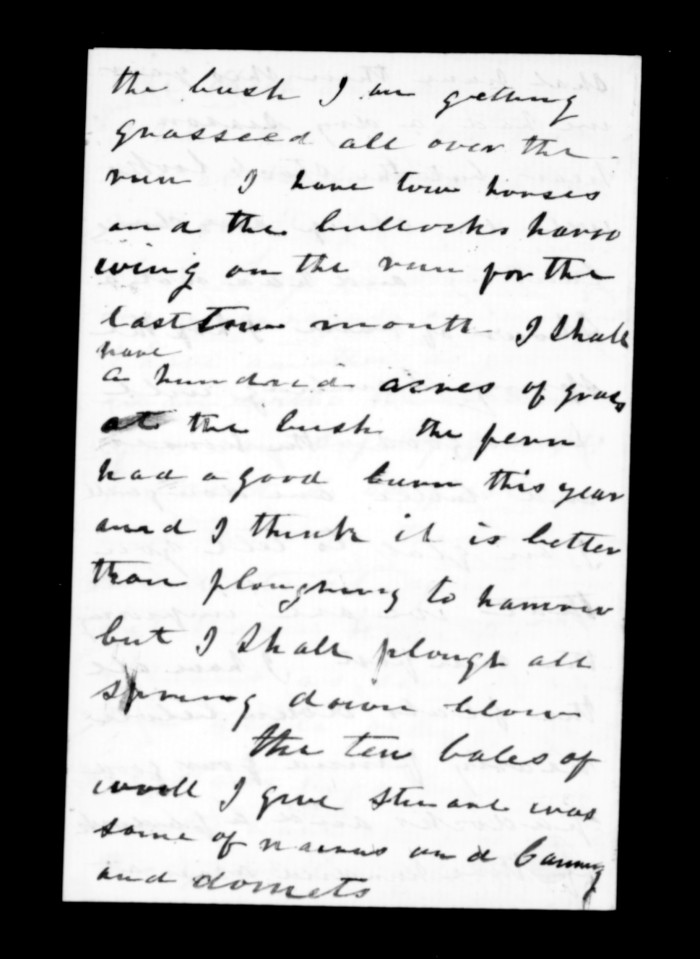 the bush I am getting
grasseed all over the
run I have tow horses
and the bullocks harro
wing on the run for the
last tow month I shall
have
a hundred acres of grass
at the bush the fern
had a good burn this year
and I think it is better
than ploughing to harrow
but I shall plough all
spring down below
the ten bales of
wooll I give Stuart was
some of and
and domets